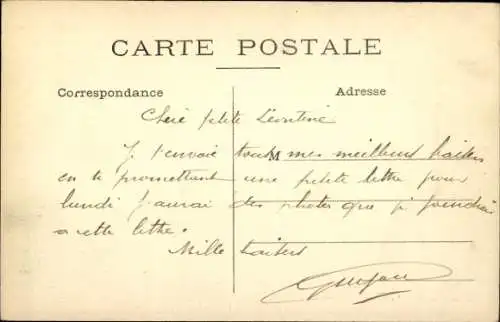 CARTE POSTALE
Correspondance
Adresse
M
Chère petite Léontine
Je t'envoie tous mes meilleurs baisers
en te promettant une petite lettre pour
lundi j'aurai des photos que je joindrai
a cette lettre.
Mille baisers